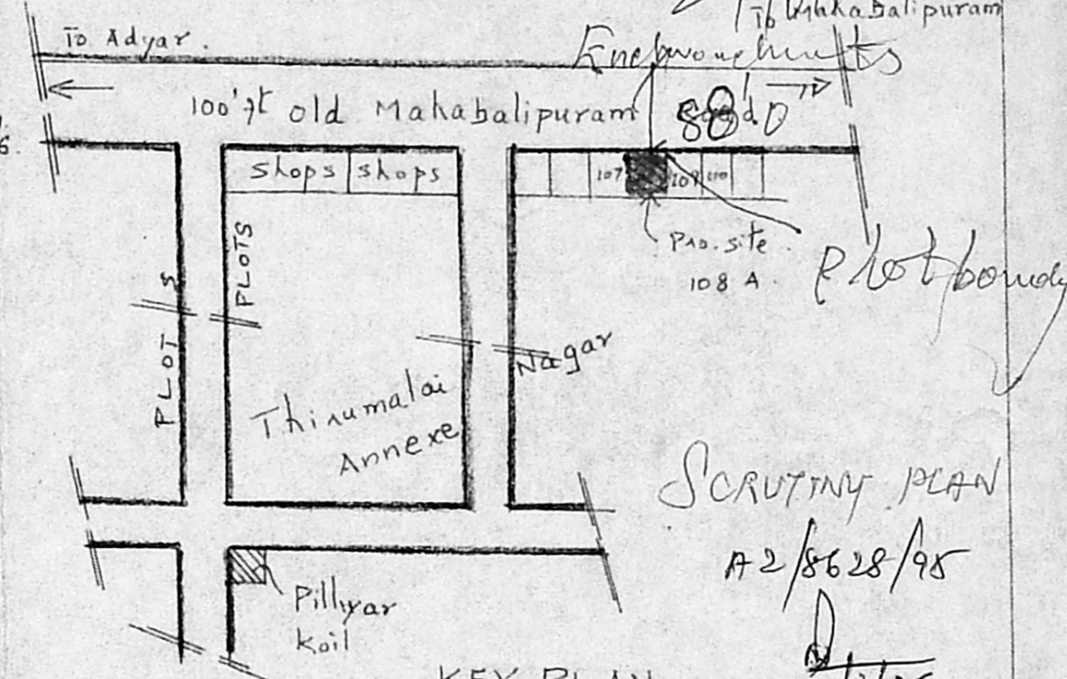 To Mahabalipuram
To Adyar.
Encroachments
100'ft old Mahabalipuram
880
6.
shops shops
107 109 110
Pro. site
108 A
Plot boundy
PLOTS
PLOTS
Nagar
Thirumalai
Annexe
SCRUTINY PLAN
A2/8628/95
Pilliyar
Koil
KEY PLAN